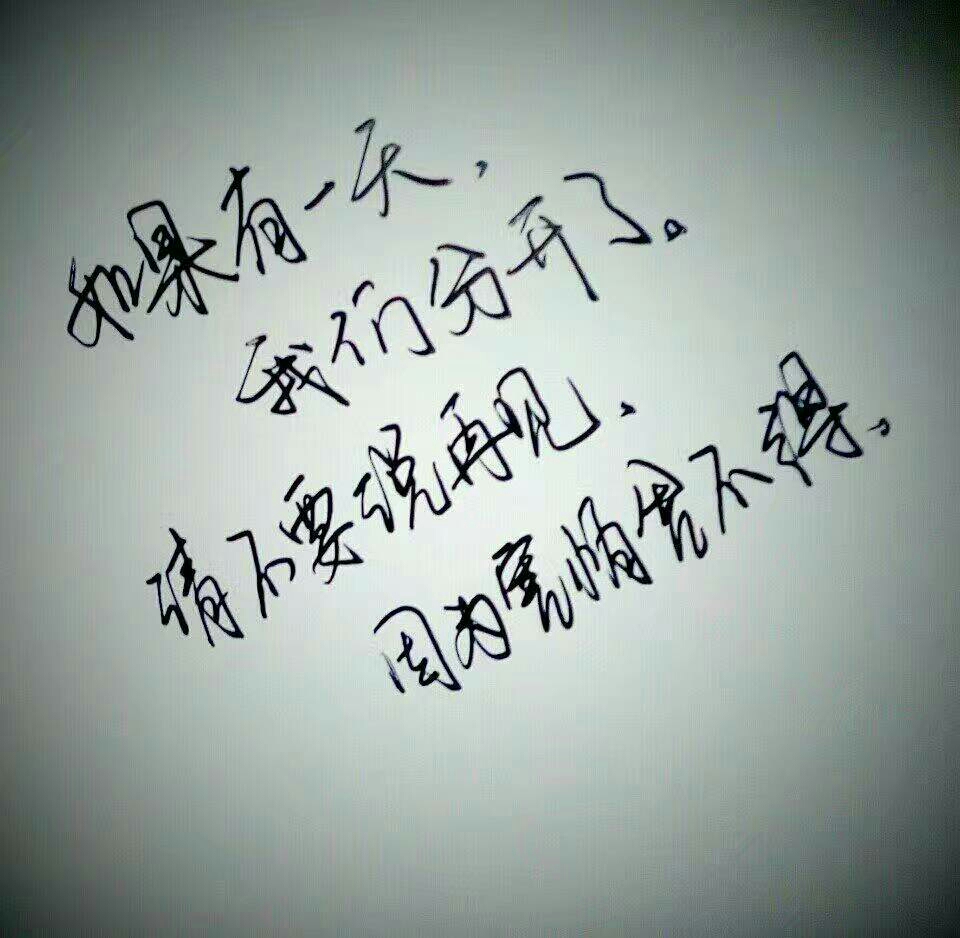 如果有一天，
我们分开了。
请不要说再见，
因为害怕舍不得。